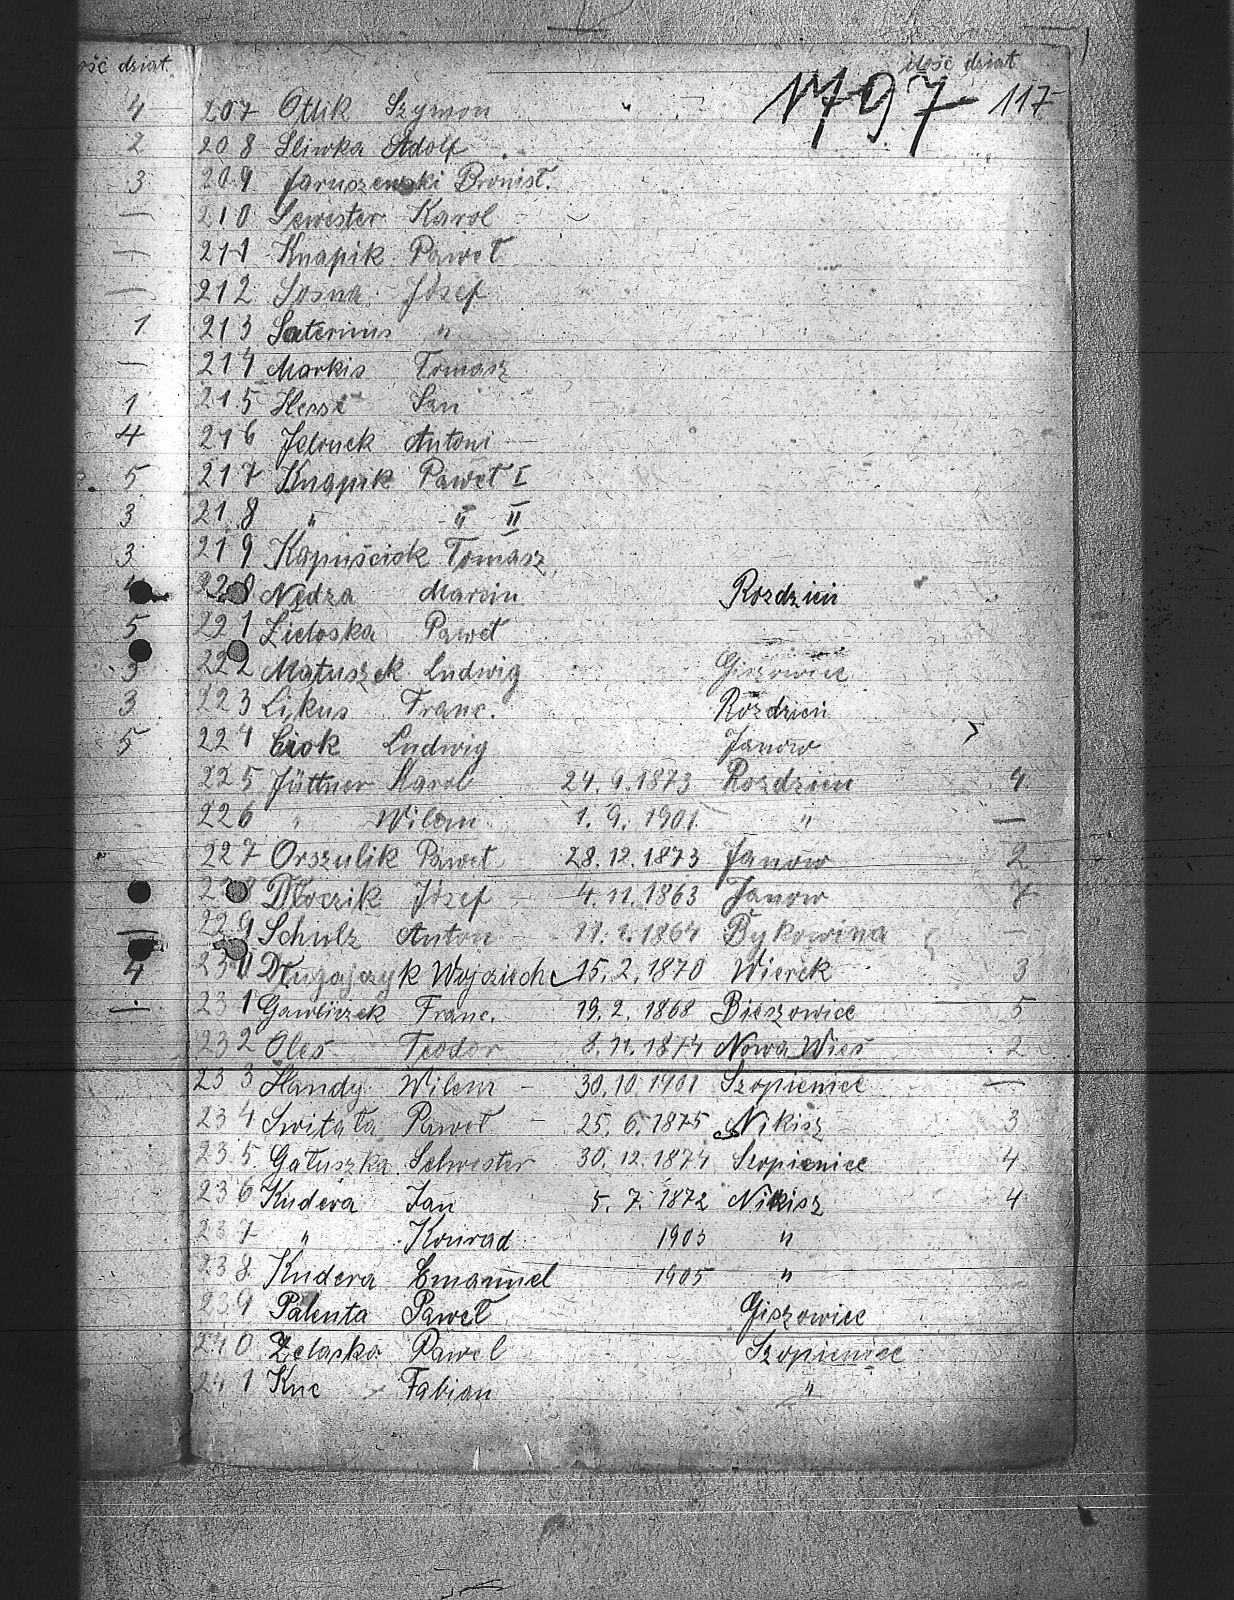 ość dziat. ilość dziat
1797 117
4 207 Otlik Szymon
2 208 Sliwka Adolf
3 209 Jaruszewski Bronisł.
— 210 Sewester Karol
— 211 Knapik Paweł
— 212 Sosna Józef
1 213 Saternus "
— 214 Markis Tomasz
1 215 Jan
4 216 Antoni
5 217 Knapik Paweł I
3 218 " " II
3 219 Kapuściok Tomasz
Nędza Marcin Rozdzień
5 221 Paweł
3 222 Matuszek Ludwig Giszowiec
3 223 Likus Franc. Rozdzień
5 224 Ciok Ludwig Janów
225 Jüttner Karol 24. 9. 1873 Rozdzien 4
226 " Wilem 1. 9. 1901 " —
227 Orszulik Paweł 28. 12. 1873 Janow 2
228 Dłoczik Józef 4. 11. 1863 Janow 7
— 229 Schulz Anton 1864 Bykowina —
4 230 15. 2. 1870 Wierek 3
— 231 Gawliczek Franc. 19. 2. 1868 Bieszowice 5
232 Oleś Teodor 8. 11. 1874 Nowa Wieś 2
233 Handy Wilem — 30. 10. 1901 Szopieniec —
234 Switała Paweł — 25. 6. 1875 Nikisz 3
235 Gałuszka Selwester 30. 12. 1874 Szopieniec 4
236 Kudera Jan 5. 7. 1872 Nikisz 4
237 " Konrad 1903 "
238 Kudera Emanuel 1905 "
239 Palenta Paweł Giszowiec
240 Żelasko Pawel Szopieniec
241 Kuc Fabian "